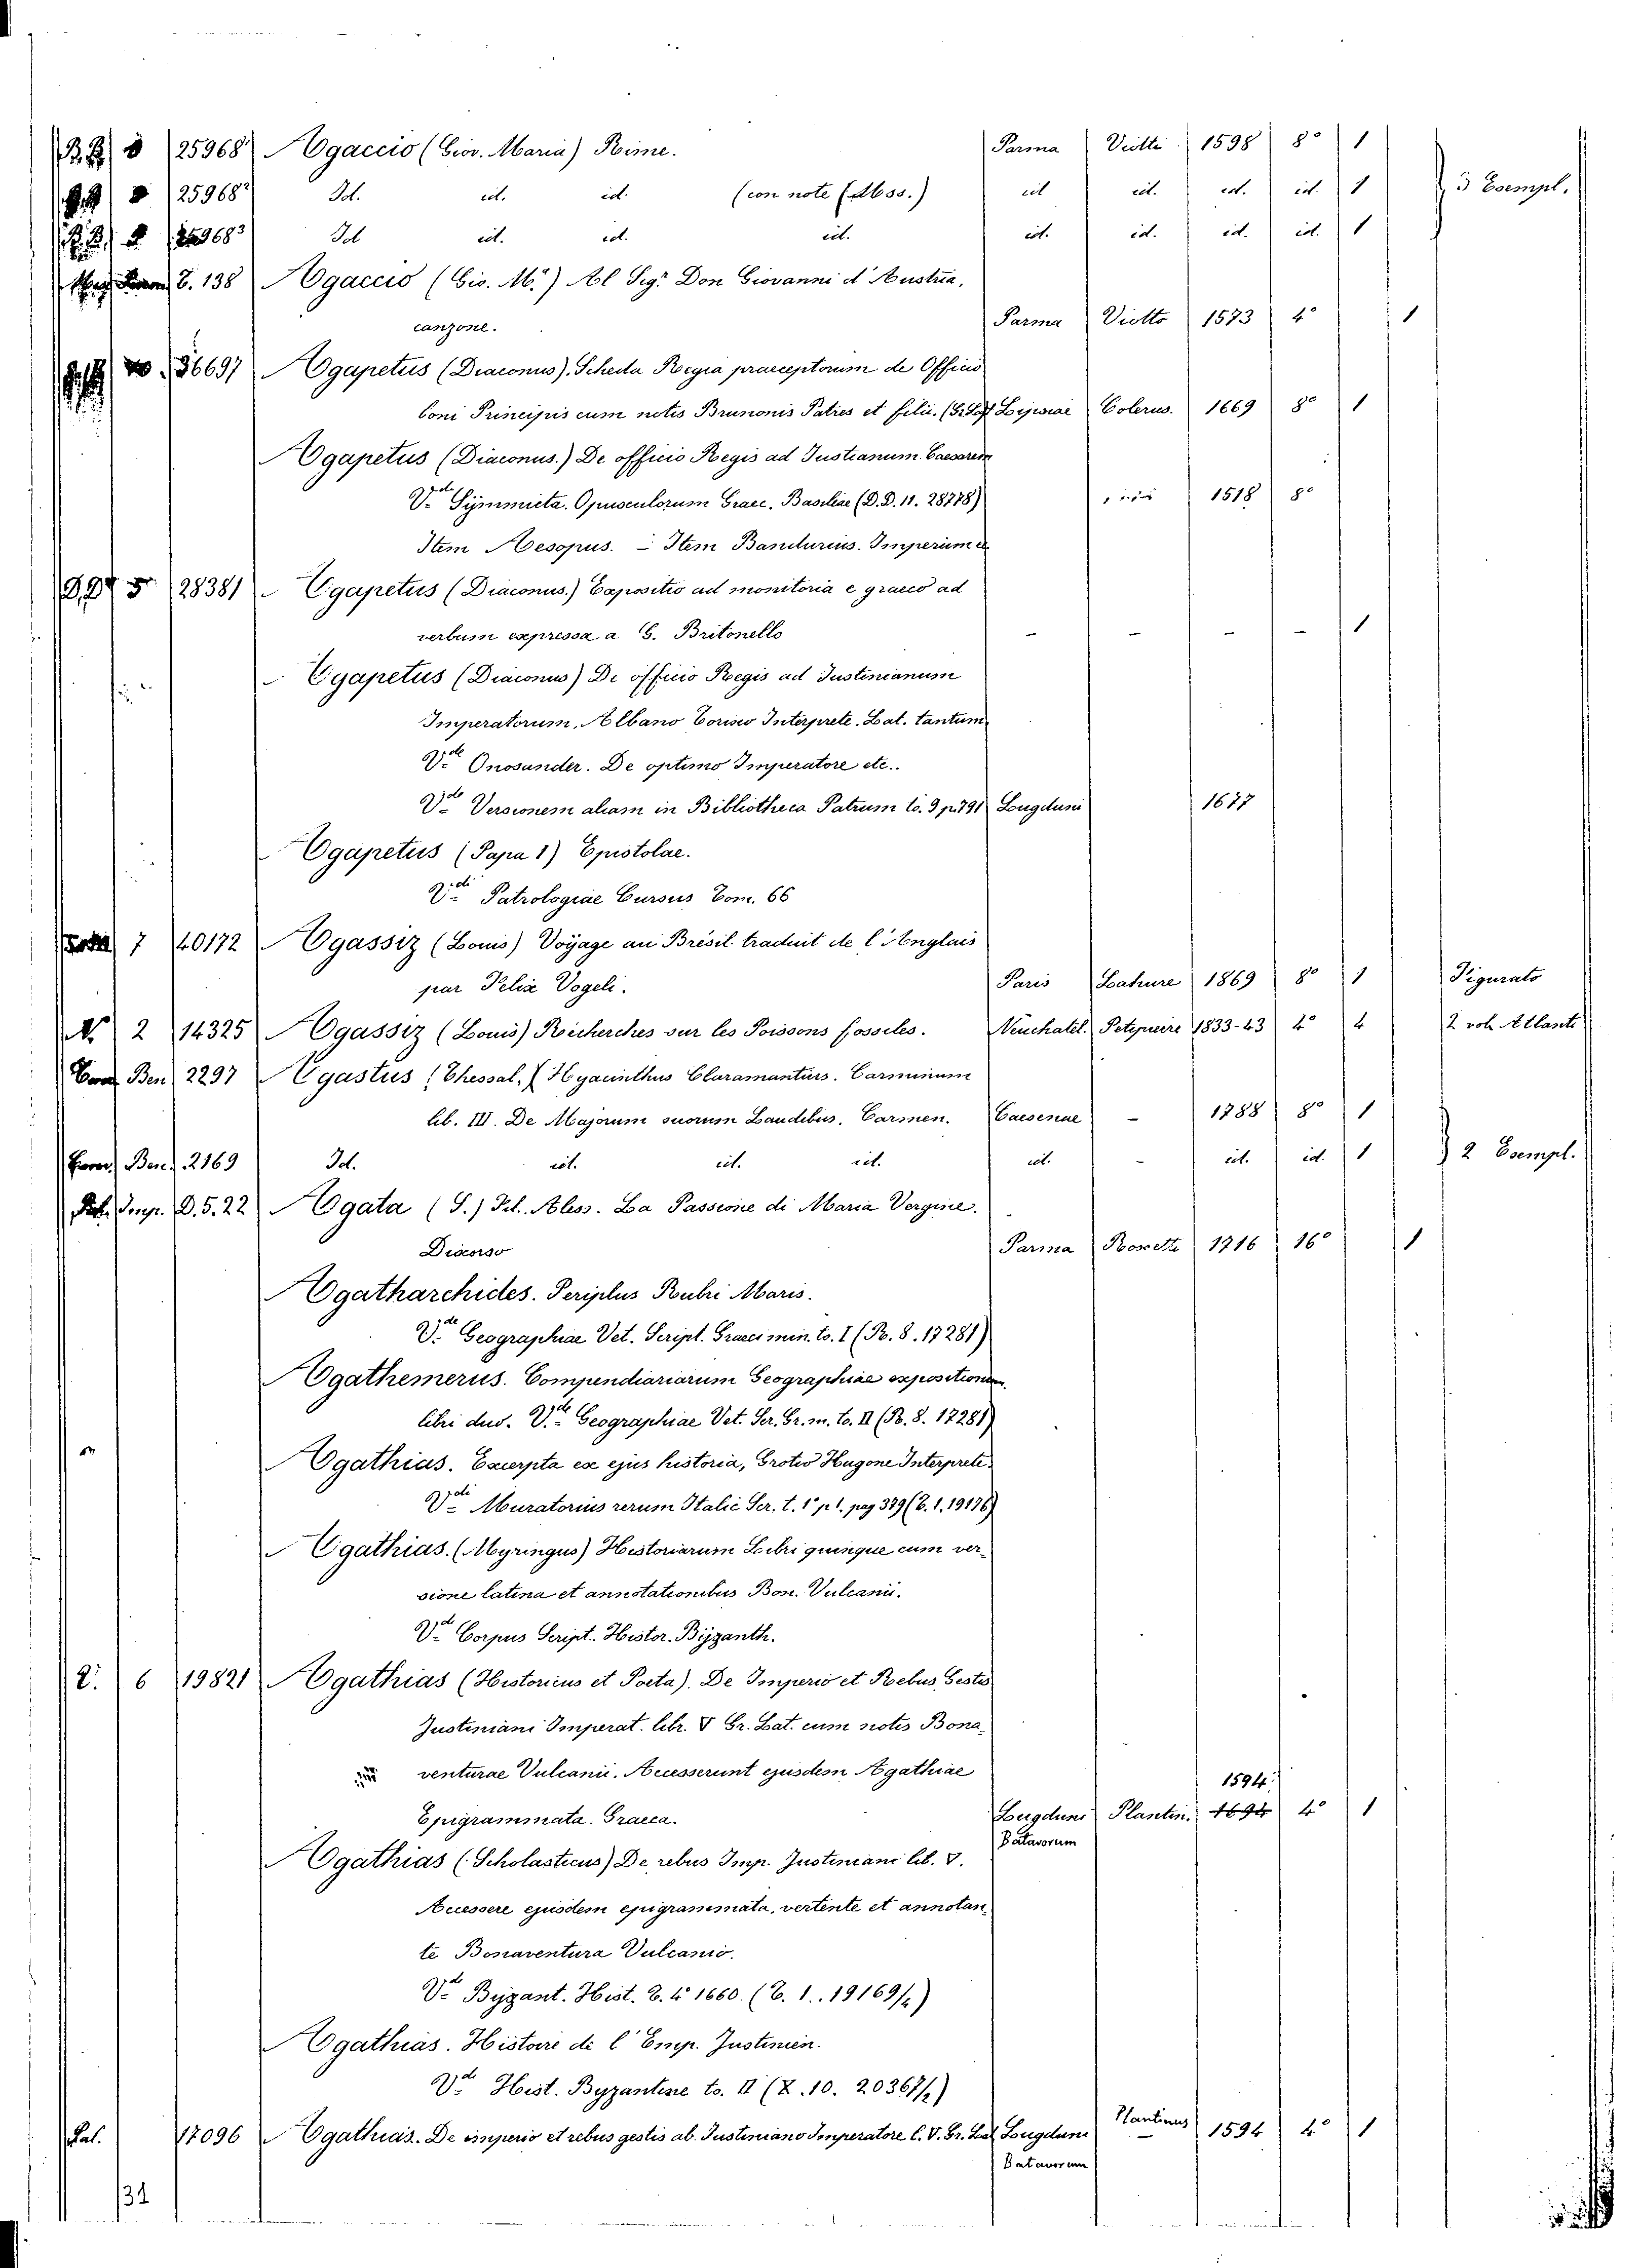 25968 Agaccio (Giov. Maria) Rime. Parma Viotti 1598 8° 1
25968² Id. id. id. (con note Mss.) id id. id. id. 1 3 Esempl.
25968³ Id id. id. id. id. id. id. id. 1
138 Agaccio (Gio. M.ª) Al Sigr Don Giovanni d'Austria,
canzone. Parma Viotto 1573 4° 1
36697 Agapetus (Diaconus). Scheda Regia praeceptorum de Officio
boni Principis cum notis Brunonis Patres et filii. Lipsiae Colerus. 1669 8° 1
Agapetus (Diaconus.) De officio Regis ad Justianum Caesarem
V.de Symmicta. Opusculorum Graec. Basiliae (D.D. 11. 28778) 1518 8°
Item Aesopus. - Item Bandurius. Imperium
5 28381 Agapetus (Diaconus.) Expositio ad monitoria e graeco ad
verbum expressa a G. Britonello - - - - 1
Agapetus (Diaconus) De officio Regis ad Justinianum
Imperatorum, Albano Interprete. Lat. tantum
V.de Onosander. De optimo Imperatore etc..
V.de Versionem aliam in Bibliotheca Patrum to. 9 p. 791 Lugduni 1677
Agapetus (Papa 1) Epistolae.
V.di Patrologiae Cursus Tom. 66
7 40172 Agassiz (Louis) Voyage au Brésil traduit de l'Anglais
par Felix Vogeli. Paris Lahure 1869 8° 1 Figurato
N. 2 14325 Agassiz (Louis) Recherches sur les Poissons fossiles. Neuchatel. Petipierre 1833-43 4° 4 2 vol. Atlante
Ben 2297 Agastus (Thessal.) Hyacinthus Claramantius. Carminum
lib. III. De Majorum suorum Laudibus. Carmen. Caesenae - 1788 8° 1
Ben. 2169 Id. id. id. id. id. - id. id. 1 2 Esempl.
Imp. D. 5. 22 Agata (S.) Fil. Aless. La Passione di Maria Vergine.
Discorso Parma Rosetti 1716 16° 1
Agatharchides. Periplus Rubri Maris.
V.de Geographiae Vet. Script. Graeci min. to. I (R. 8. 17281)
Agathemerus. Compendiariarum Geographiae expositionum
libri duo. V.de Geographiae Vet. Scr. Gr. m. to. II (R. 8. 17281)
Agathias. Excerpta ex ejus historia, Grotio Hugone Interprete.
V.di Muratorius rerum Italic Scr. t. 1° p 1. pag 379 (Z. 1. 19176)
Agathias. (Myringus) Historiarum Libri quinque cum ver-
sione latina et annotationibus Bon. Vulcanii.
V.de Corpus Script. Histor. Byzanth.
Z. 6 19821 Agathias (Historicus et Poeta). De Imperio et Rebus Gestis
Justiniani Imperat. libr. V Gr. Lat. cum notis Bona-
venturae Vulcanii. Accesserunt ejusdem Agathiae
1594
Epigrammata. Graeca. Lugduni Plantin. 1694 4° 1
Batavorum
Agathias (Scholasticus) De rebus Imp. Justiniani lib. V.
Accessere ejusdem epigrammata, vertente et annotan-
te Bonaventura Vulcanio.
V.de Byzant. Hist. 1660 (Z. 1. 19169/4)
Agathias. Histoire de l'Emp. Justinien.
V.de Hist. Byzantine to. II (Z. 10. 20367/2)
Pal. 17096 Agathias. De imperio et rebus gestis ab. Justiniano Imperatore l. V. Gr. Lat. Lugduni Plantinus 1594 4° 1
Batavorum
31